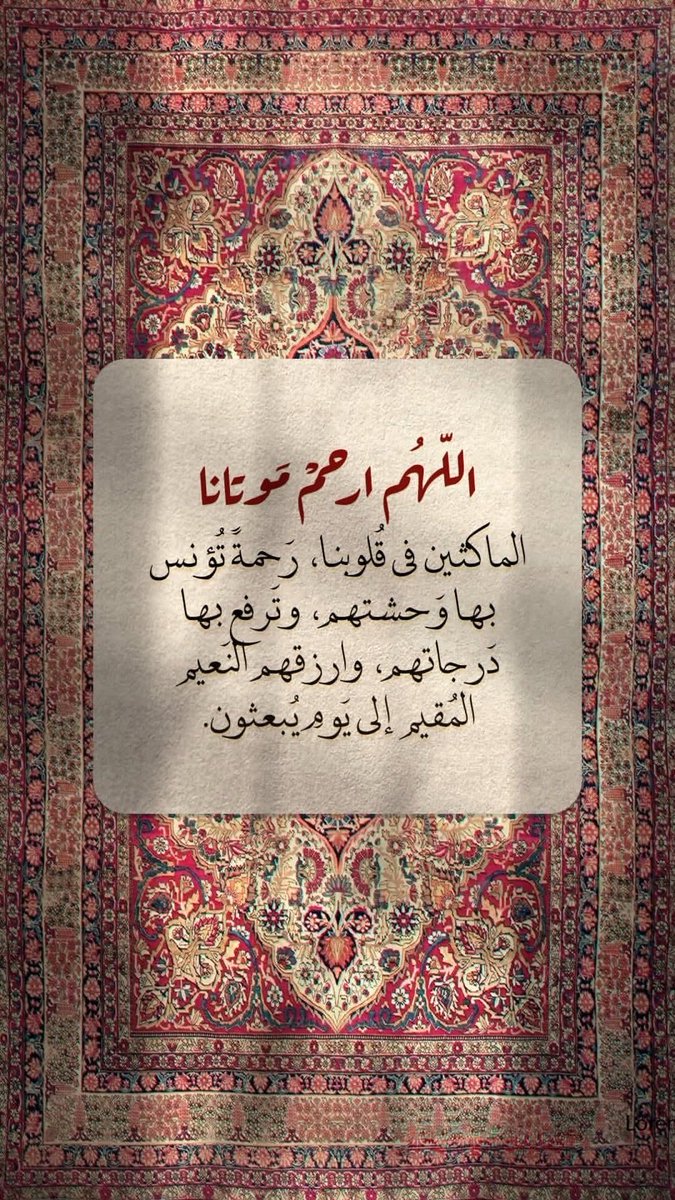 اللّهُم ارحمْ مَوتانا
الماكثين فى قُلوبنا، رَحمةً تُؤنس
بها وَحشتهم، وتَرفع بها
دَرجاتهم، وارزقهم النَعيم
المُقيم إلى يَومِ يُبعثون.
Lorem